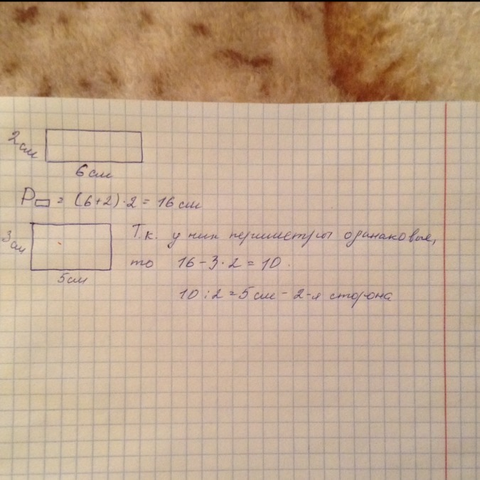 2 см
6 см
P▭ = (6+2)·2 = 16 см
3 см
5 см
Т.к. у них периметры одинаковые,
то 16-3·2=10.
10:2=5 см - 2-я сторона